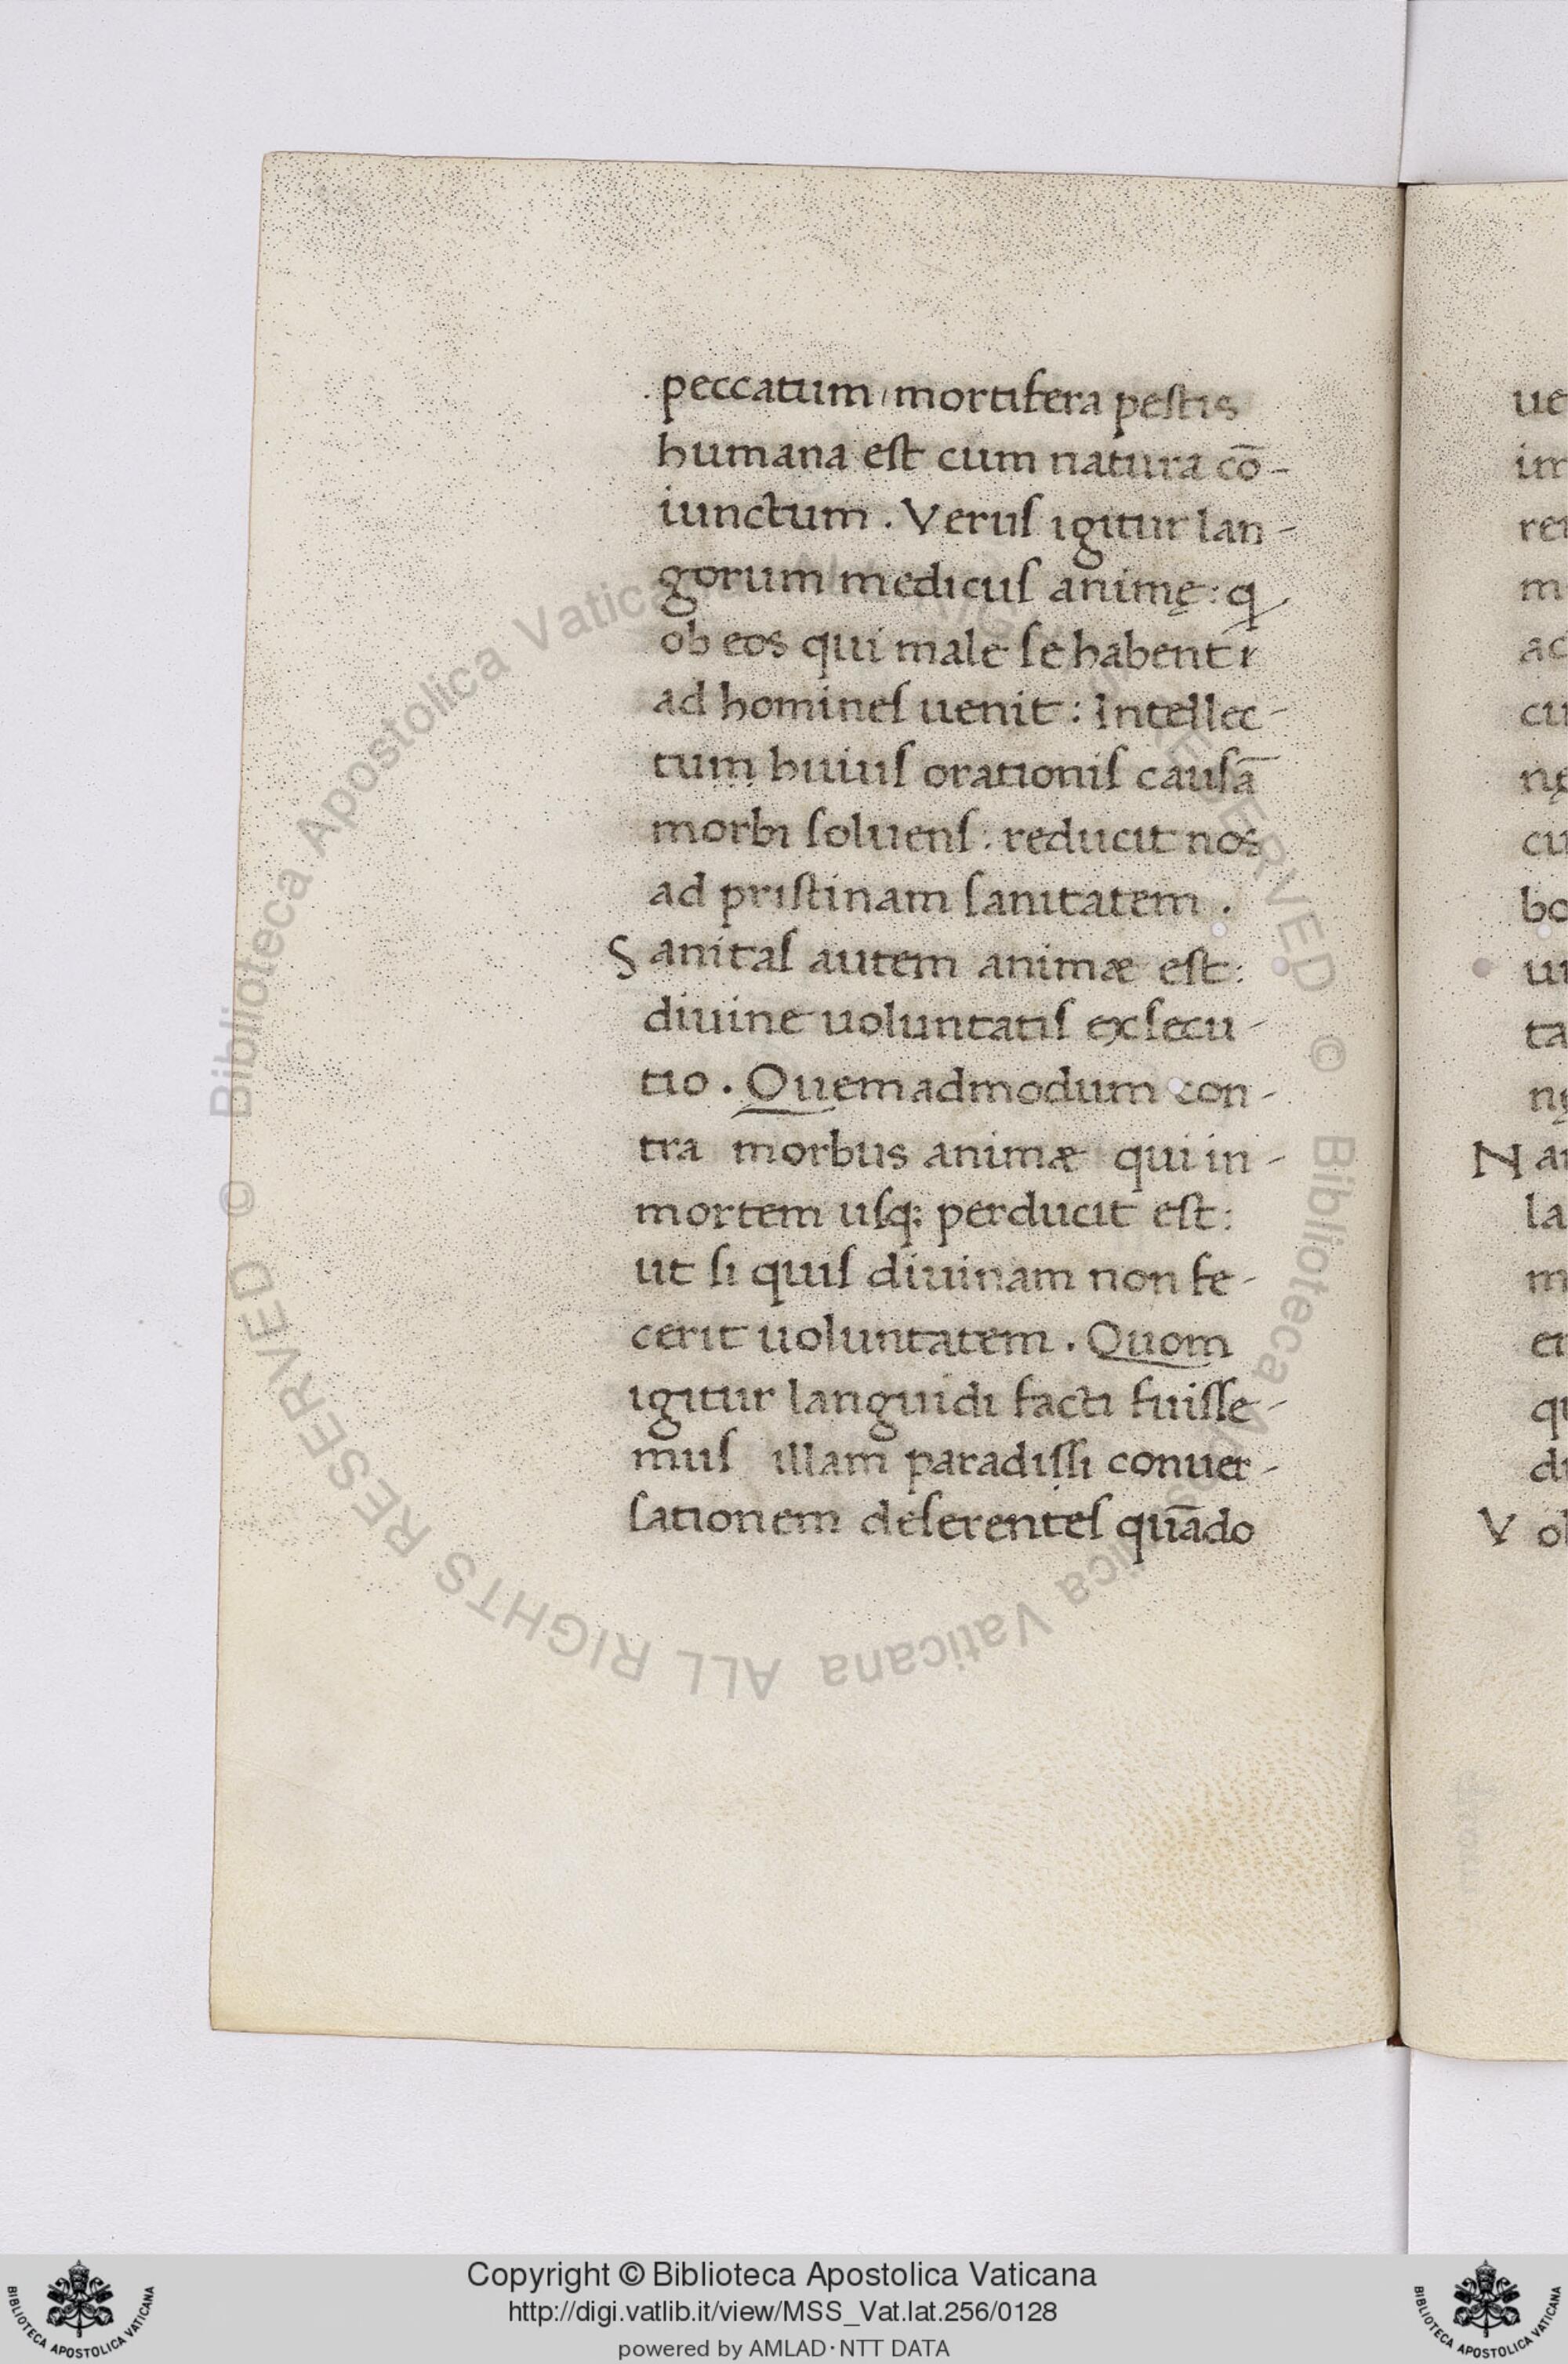 peccatum, mortifera pestis
humana est cum natura cō-
iunctum. Verus igitur lan-
gorum medicus animę: q
ob eos qui male se habent
ad homines uenit: Intellec-
tum huius orationis causā
morbi soluens: reducit nos
ad pristinam sanitatem.
Sanitas autem animæ est:
diuine uoluntatis exsecu-
tio. Quemadmodum con-
tra morbus animæ qui in-
mortem usq; perducit est:
ut si quis diuinam non fe-
cerit uoluntatem. Quom
igitur languidi facti fuisse-
mus illam paradissi conuer-
sationem deserentes quādo
ue
im
ret
m
ac
cu
nę
cu
bo
ui
ta
nę
Nar
la
m
er
qu
di
Vol
© Biblioteca Apostolica Vaticana ALL RIGHTS RESERVED
© Biblioteca Apostolica Vaticana ALL RIGHTS RESERVED
Copyright © Biblioteca Apostolica Vaticana
http://digi.vatlib.it/view/MSS_Vat.lat.256/0128
powered by AMLAD·NTT DATA
BIBLIOTECA APOSTOLICA VATICANA
BIBLIOTECA APOSTOLICA VATICANA